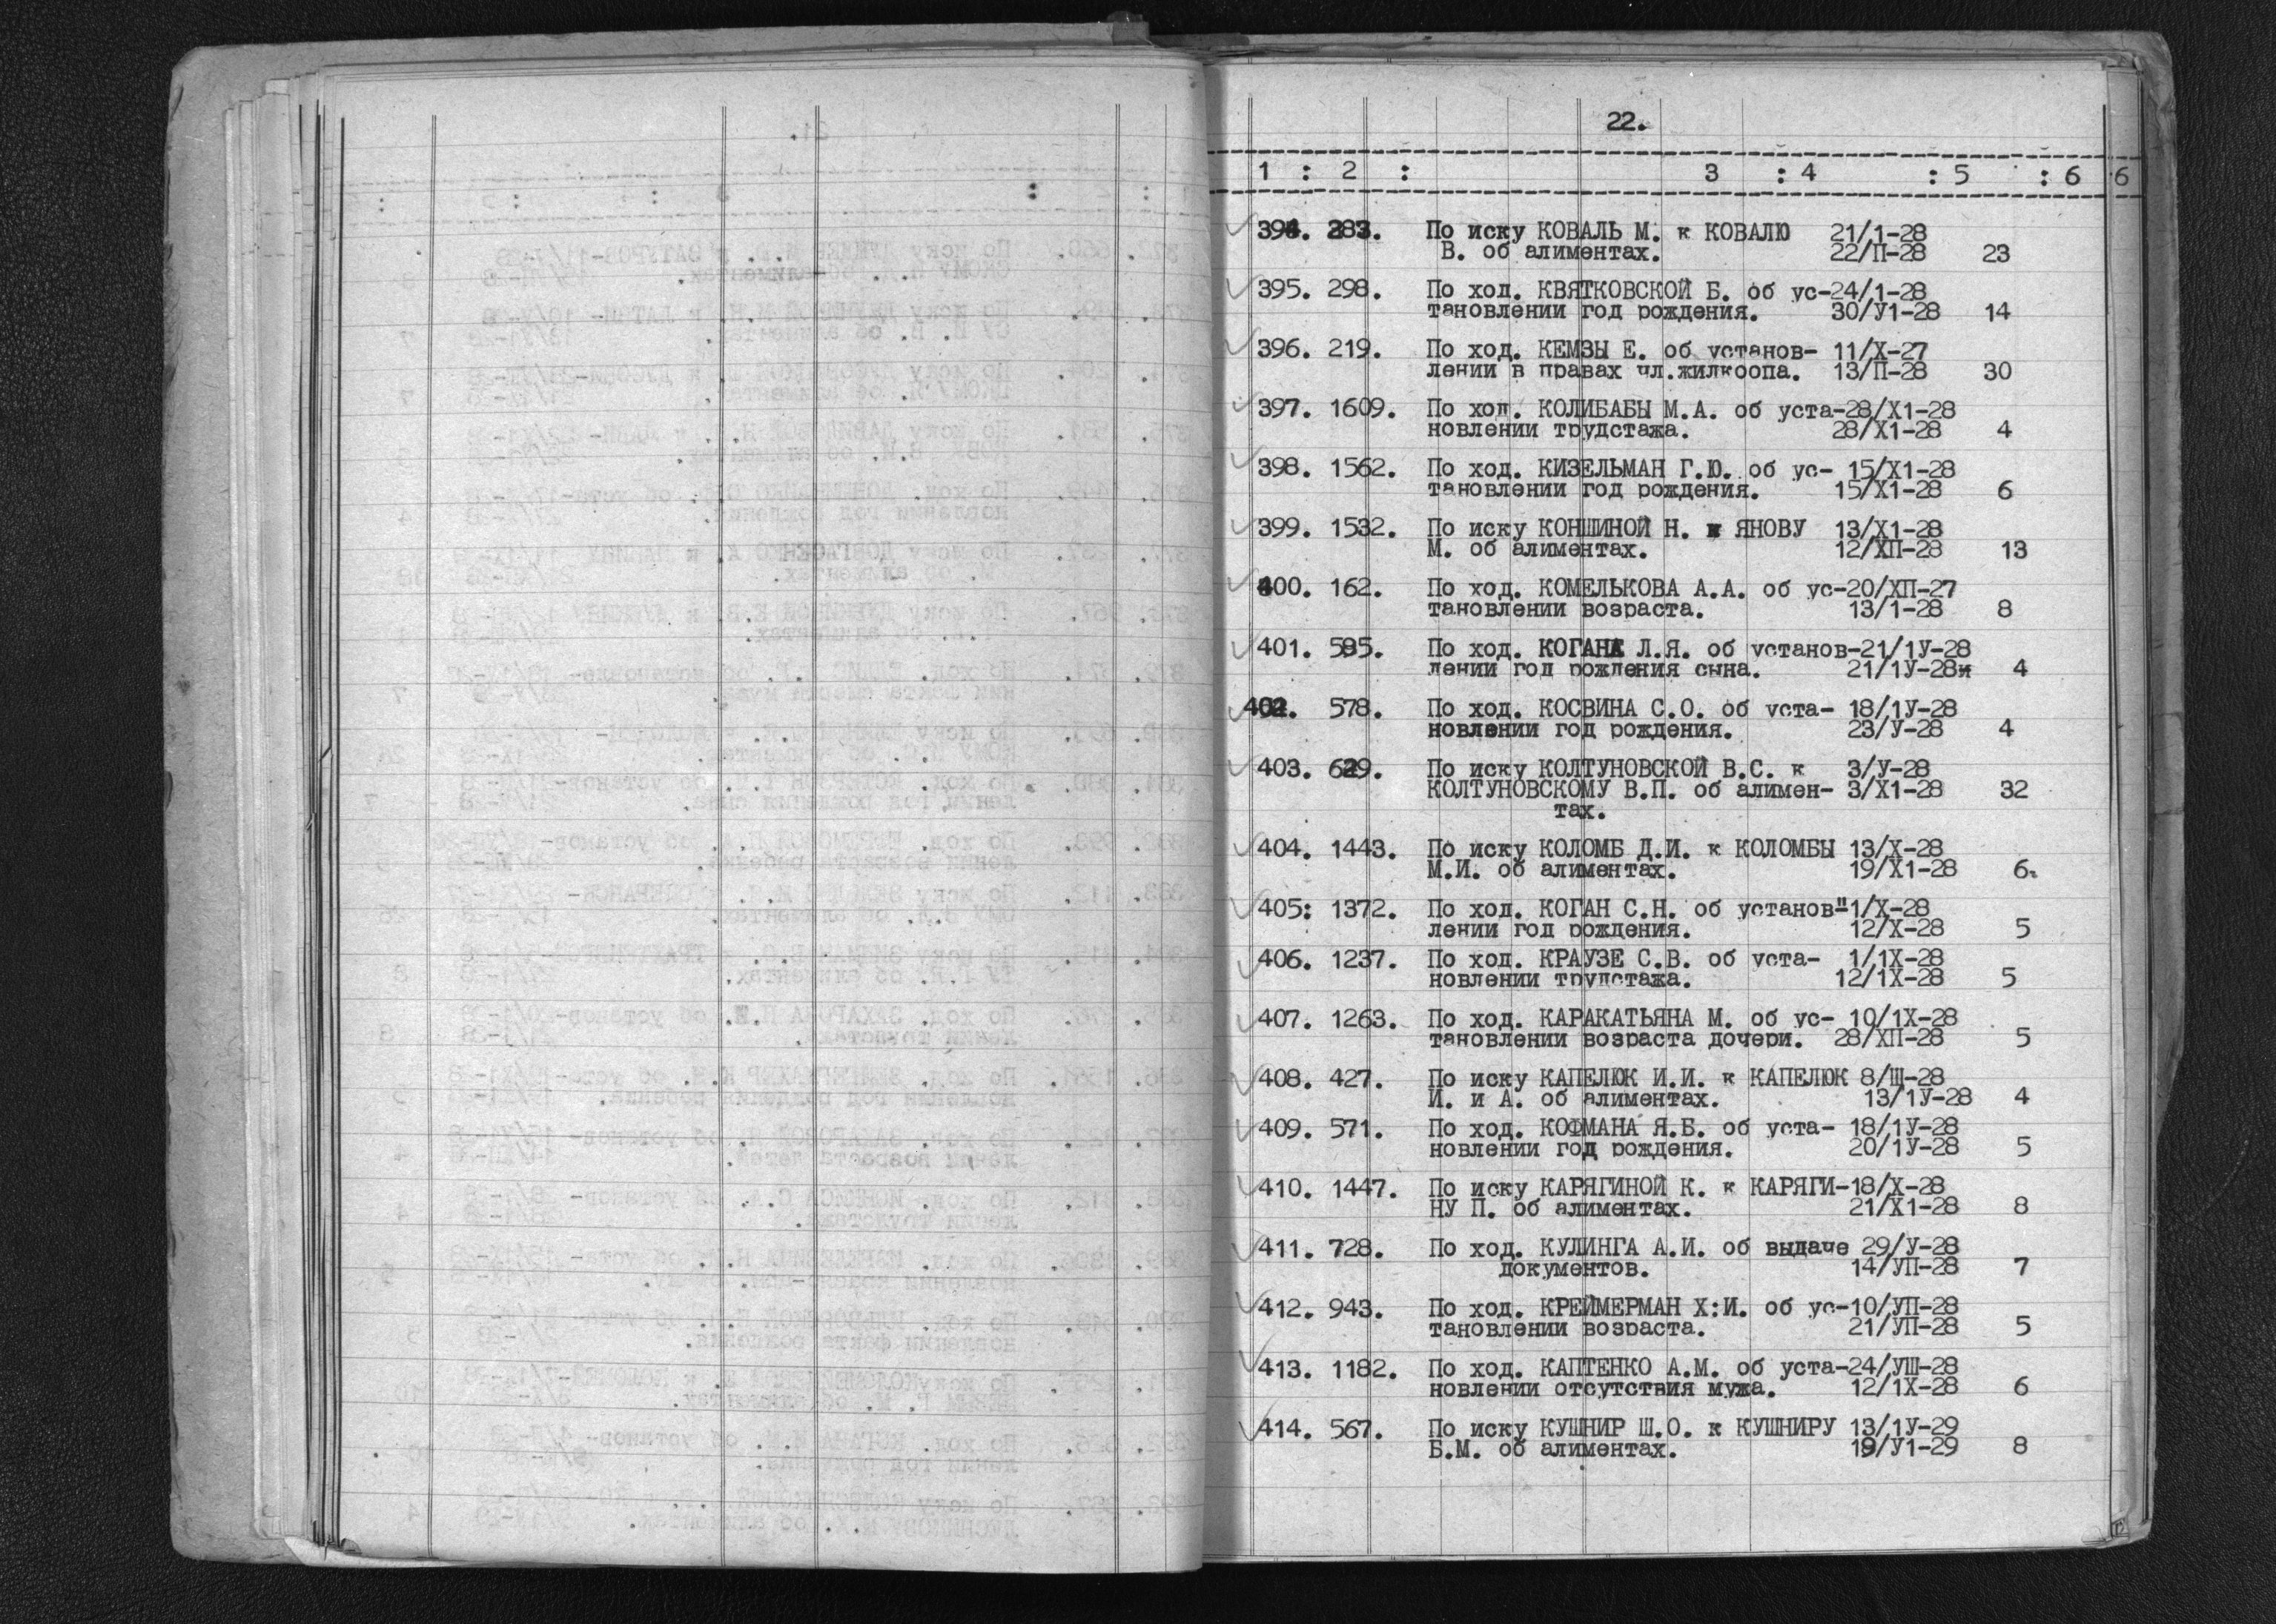 22.
1 : 2 : 3 : 4 : 5 : 6 6
394. 283. По иску КОВАЛЬ М. к КОВАЛЮ 21/1-28
В. об алиментах. 22/П-28 23
395. 298. По ход. КВЯТКОВСКОЙ Б. об ус-24/1-28
тановлении год рождения. 30/У1-28 14
396. 219. По ход. КЕМЗЫ Е. об установ- 11/Х-27
лении в правах чл.жилкоопа. 13/П-28 30
397. 1609. По ход. КОЛИБАБЫ М.А. об уста-28/Х1-28
новлении трудстажа. 28/Х1-28 4
398. 1562. По ход. КИЗЕЛЬМАН Г.Ю. об ус- 15/Х1-28
тановлении год рождения. 15/Х1-28 6
399. 1532. По иску КОНШИНОЙ Н. к ЯНОВУ 13/Х1-28
М. об алиментах. 12/ХП-28 13
400. 162. По ход. КОМЕЛЬКОВА А.А. об ус-20/ХП-27
тановлении возраста. 13/1-28 8
401. 595. По ход. КОГАНА Л.Я. об установ-21/1У-28
лении год рождения сына. 21/1У-28 4
402. 578. По ход. КОСВИНА С.О. об уста- 18/1У-28
новлении год рождения. 23/У-28 4
403. 629. По иску КОЛТУНОВСКОЙ В.С. к 3/У-28
КОЛТУНОВСКОМУ В.П. об алимен- 3/Х1-28 32
тах.
404. 1443. По иску КОЛОМБ Д.И. к КОЛОМБЫ 13/Х-28
М.И. об алиментах. 19/Х1-28 6.
405: 1372. По ход. КОГАН С.Н. об установ"1/Х-28
лении год рождения. 12/Х-28 5
406. 1237. По ход. КРАУЗЕ С.В. об уста- 1/1Х-28
новлении трудстажа. 12/1Х-28 5
407. 1263. По ход. КАРАКАТЬЯНА М. об ус- 10/1Х-28
тановлении возраста дочери. 28/ХП-28 5
408. 427. По иску КАПЕЛЮК И.И. к КАПЕЛЮК 8/Ш-28
И. и А. об алиментах. 13/1У-28 4
409. 571. По ход. КОФМАНА Я.Б. об уста- 18/1У-28
новлении год рождения. 20/1У-28 5
410. 1447. По иску КАРЯГИНОЙ К. к КАРЯГИ-18/Х-28
НУ П. об алиментах. 21/Х1-28 8
411. 728. По ход. КУЛИНГА А.И. об выдаче 29/У-28
документов. 14/УП-28 7
412. 943. По ход. КРЕЙМЕРМАН Х:И. об ус-10/УП-28
тановлении возраста. 21/УП-28 5
413. 1182. По ход. КАПТЕНКО А.М. об уста-24/УШ-28
новлении отсутствия мужа. 12/1Х-28 6
414. 567. По иску КУШНИР Ш.О. к КУШНИРУ 13/1У-29
Б.М. об алиментах. 19/У1-29 8